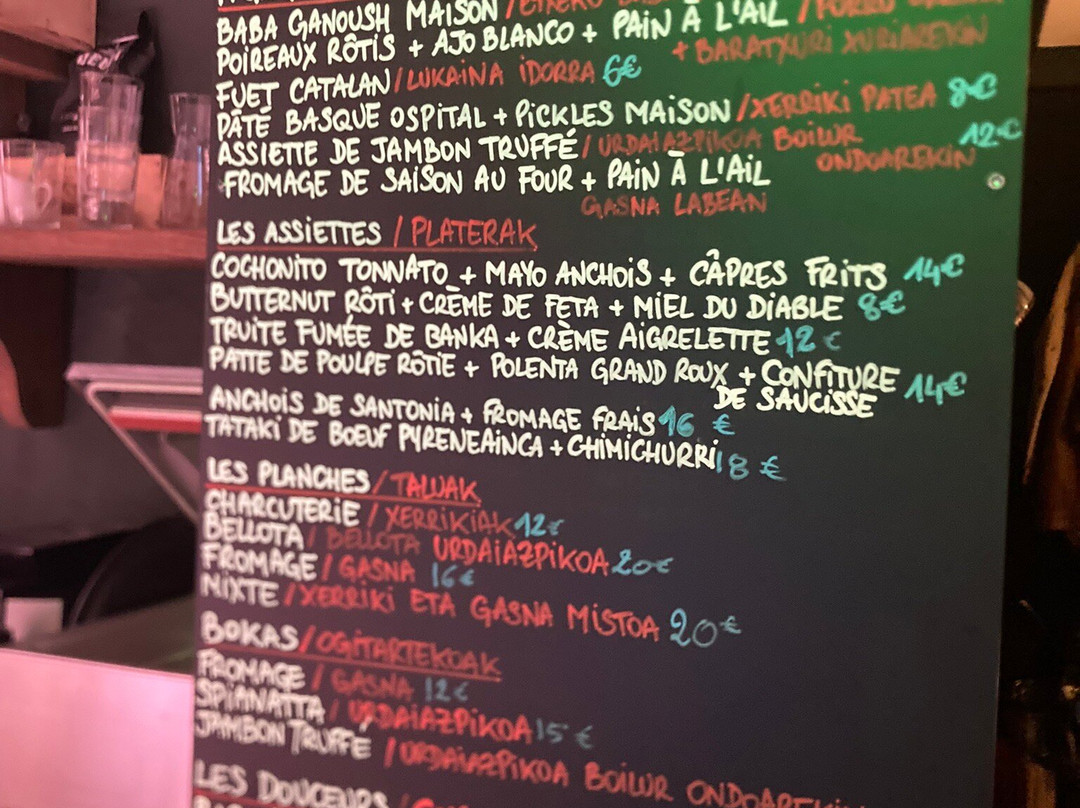 BABA GANOUSH MAISON /
POIREAUX RÔTIS + AJO BLANCO + PAIN À L'AIL /
+ BARATXURI XURIAREKIN
FUET CATALAN / LUKAINA IDORRA 6€
PÂTÉ BASQUE OSPITAL + PICKLES MAISON / XERRIKI PATEA 8€
ASSIETTE DE JAMBON TRUFFÉ / URDAIAZPIKOA BOILUR 12€
ONDOAREKIN
FROMAGE DE SAISON AU FOUR + PAIN À L'AIL
GASNA LABEAN
LES ASSIETTES / PLATERAK
COCHONITO TONNATO + MAYO ANCHOIS + CÂPRES FRITS 14€
BUTTERNUT RÔTI + CRÈME DE FETA + MIEL DU DIABLE 8€
TRUITE FUMÉE DE BANKA + CRÈME AIGRELETTE 12€
PATTE DE POULPE RÔTIE + POLENTA GRAND ROUX + CONFITURE
DE SAUCISSE 14€
ANCHOIS DE SANTONIA + FROMAGE FRAIS 16 €
TATAKI DE BOEUF PYRENEAINCA + CHIMICHURRI 18 €
LES PLANCHES / TALUAK
CHARCUTERIE / XERRIKIAK 12€
BELLOTA / BELLOTA URDAIAZPIKOA 20€
FROMAGE / GASNA 16€
MIXTE / XERRIKI ETA GASNA MISTOA 20€
BOKAS / OGITARTEKOAK
FROMAGE / GASNA 12€
SPIANATTA / URDAIAZPIKOA 15€
JAMBON TRUFFÉ / URDAIAZPIKOA BOILUR ONDOAREKIN
LES DOUCEURS /